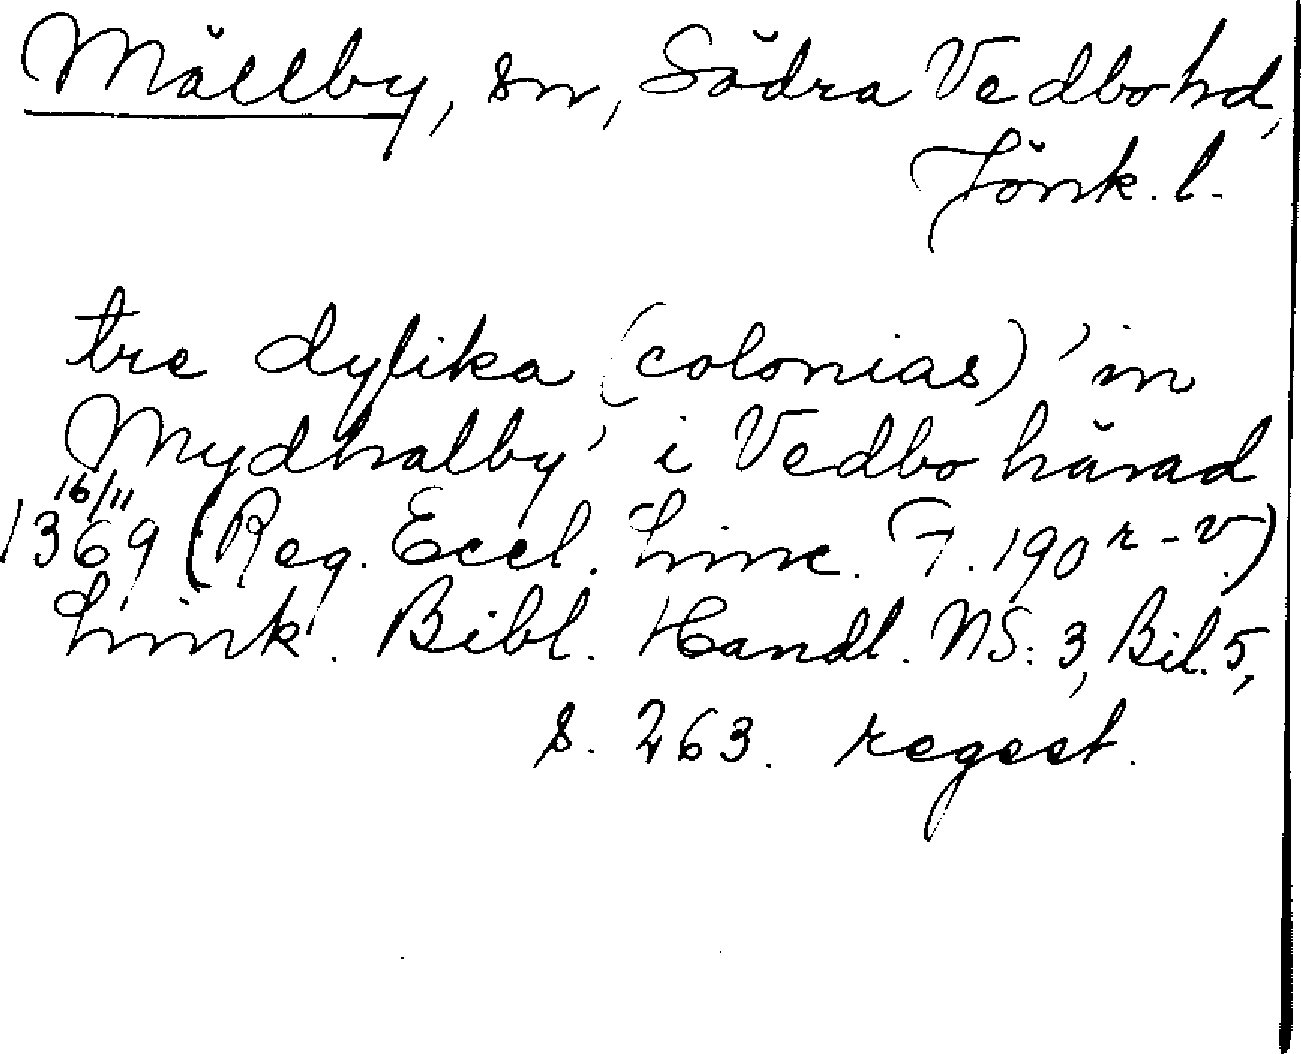 Mällby, sn, Södra Vedbo hd,
Jönk. l.
tre dylika (colonias) 'in
Mydhalby' i Vedbo härad
16/11
1369 (Reg. Eccl. Linc. F. 190 r-v.)
Link. Bibl. Handl. NS: 3, Bil. 5,
s. 263. regest.